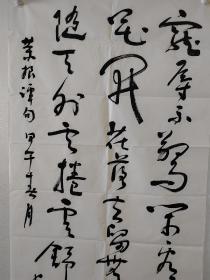 寵辱不驚閑看
花開花落去留無
隨天外雲捲雲舒
菜根譚句 甲午月